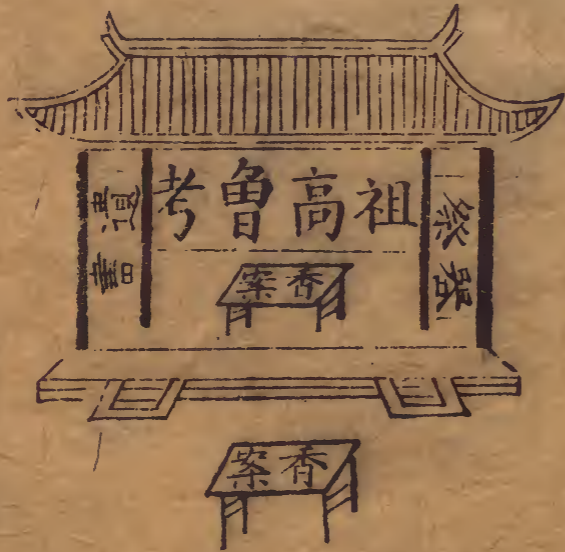 祭器
祖高曾考
遺書
香案
香案